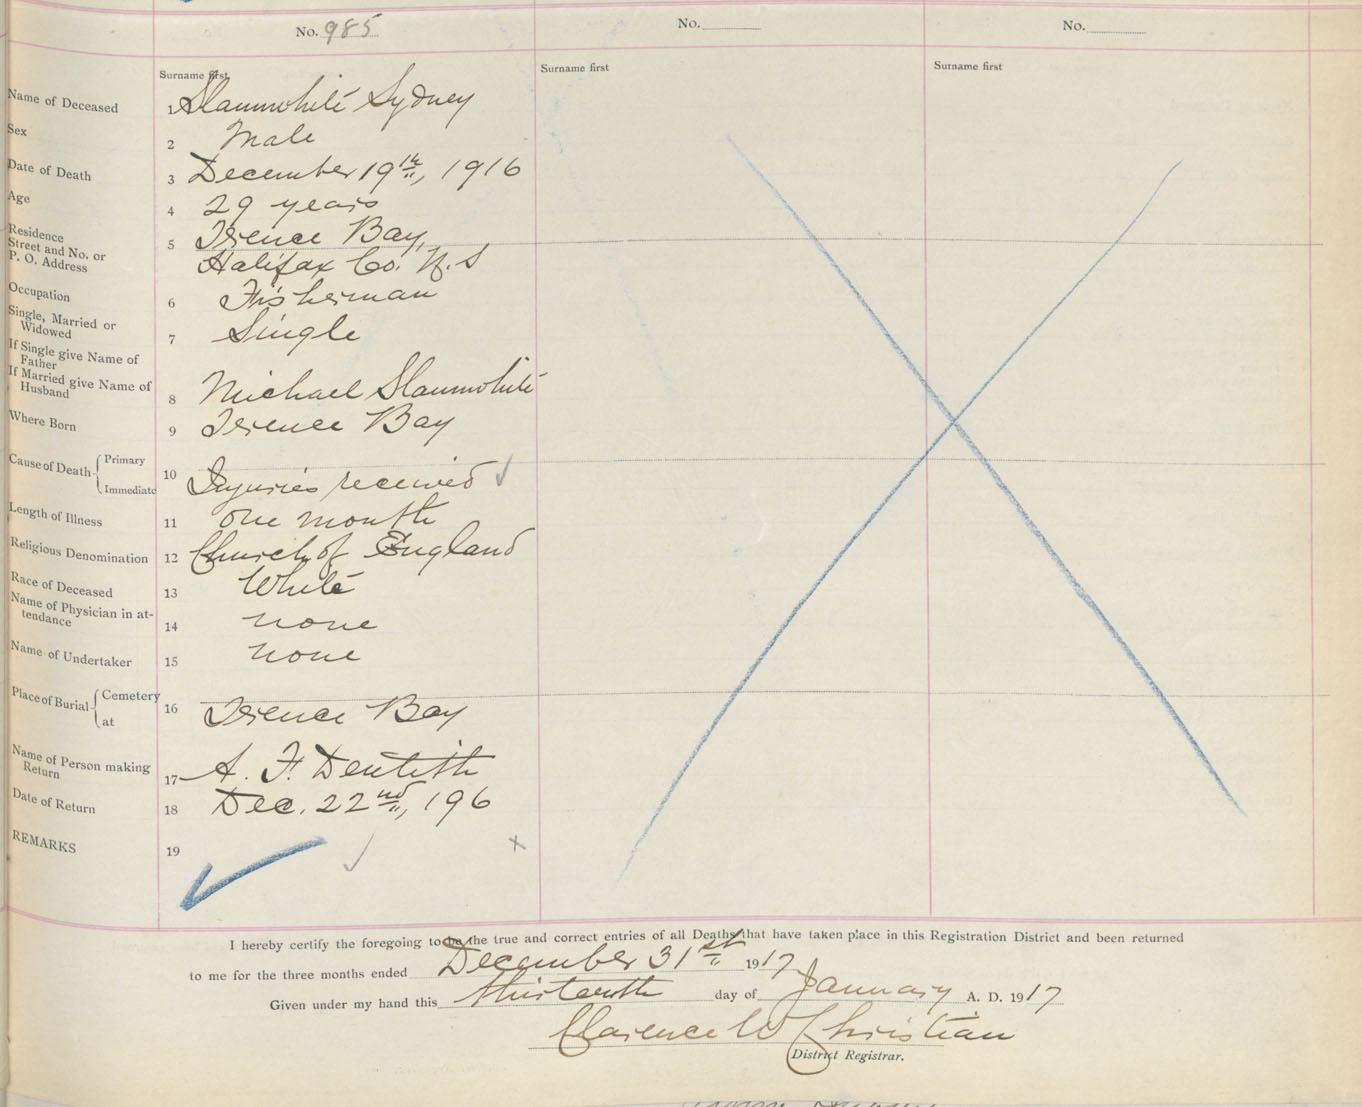 No. 985
No.
No.
Surname first
Surname first
Surname first
Name of Deceased 1 Slaunwhite Sydney
Sex 2 Male
Date of Death 3 December 19th, 1916
Age 4 29 years
Residence
Street and No. or
P. O. Address
5 Terence Bay,
Halifax Co. N.S
Occupation 6 Fisherman
Single, Married or
Widowed
7 Single
If Single give Name of
Father
If Married give Name of
Husband
8 Michael Slaunwhite
Where Born 9 Terence Bay
Cause of Death { Primary
Immediate
10 Injuries received
Length of Illness 11 one month
Religious Denomination 12 Church of England
Race of Deceased 13 White
Name of Physician in at-
tendance
14 none
Name of Undertaker 15 none
Place of Burial { Cemetery
at
16 Terence Bay
Name of Person making
Return
17 A. F. Dentith
Date of Return 18 Dec. 22nd, 196
REMARKS 19
I hereby certify the foregoing to be the true and correct entries of all Deaths that have taken place in this Registration District and been returned
to me for the three months ended December 31st 1917
Given under my hand this thirteenth day of January A. D. 1917
Clarence W Christian
District Registrar.